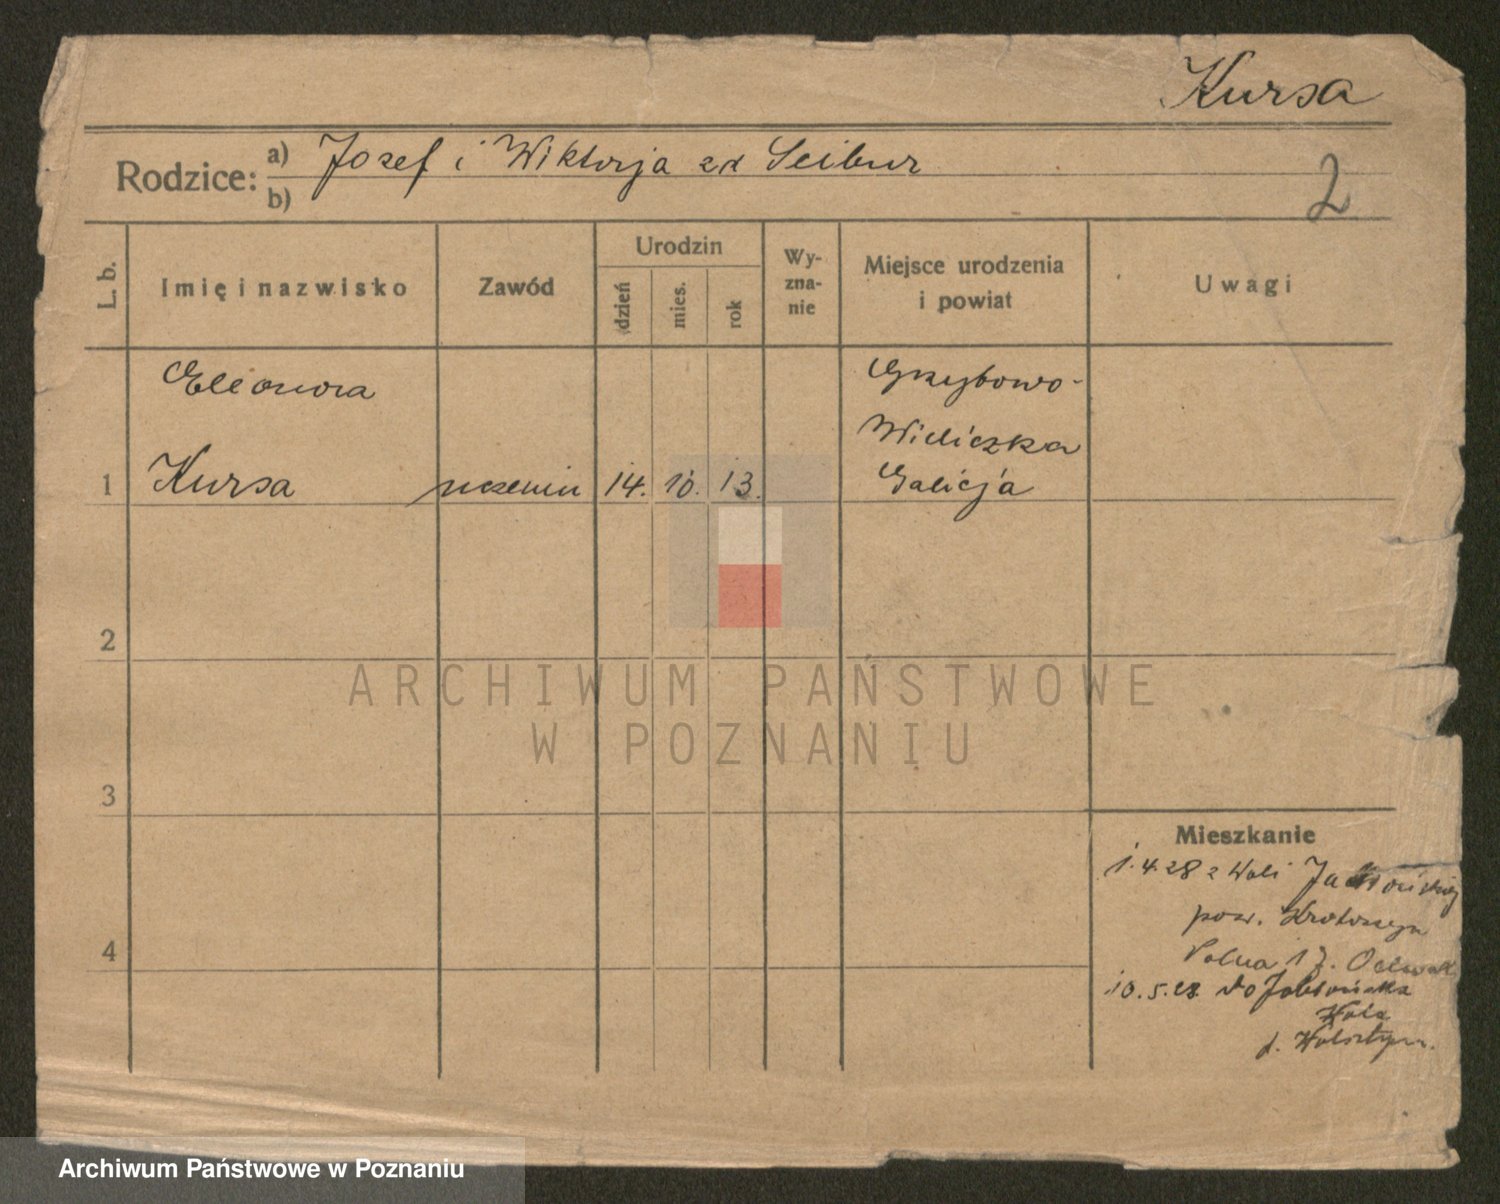 Kursa
Rodzice: a) Jozef i Wiktorja zd Scibur
b)
2
L. b.
Imię i nazwisko
Zawód
Urodzin
dzień
mies.
rok
Wy-
zna-
nie
Miejsce urodzenia
i powiat
Uwagi
Eleonora
Grzybowo-
Wieliczka
1 Kursa uczenica 14. 10. 13. Galicja
2
3
4
Mieszkanie
1.4.28 z Woli
pow. Krotoszyn
Polna 17.
10.5.28 do Jabłońska
Wola
p. Wolsztyn.
ARCHIWUM PAŃSTWOWE
W POZNANIU
Archiwum Państwowe w Poznaniu